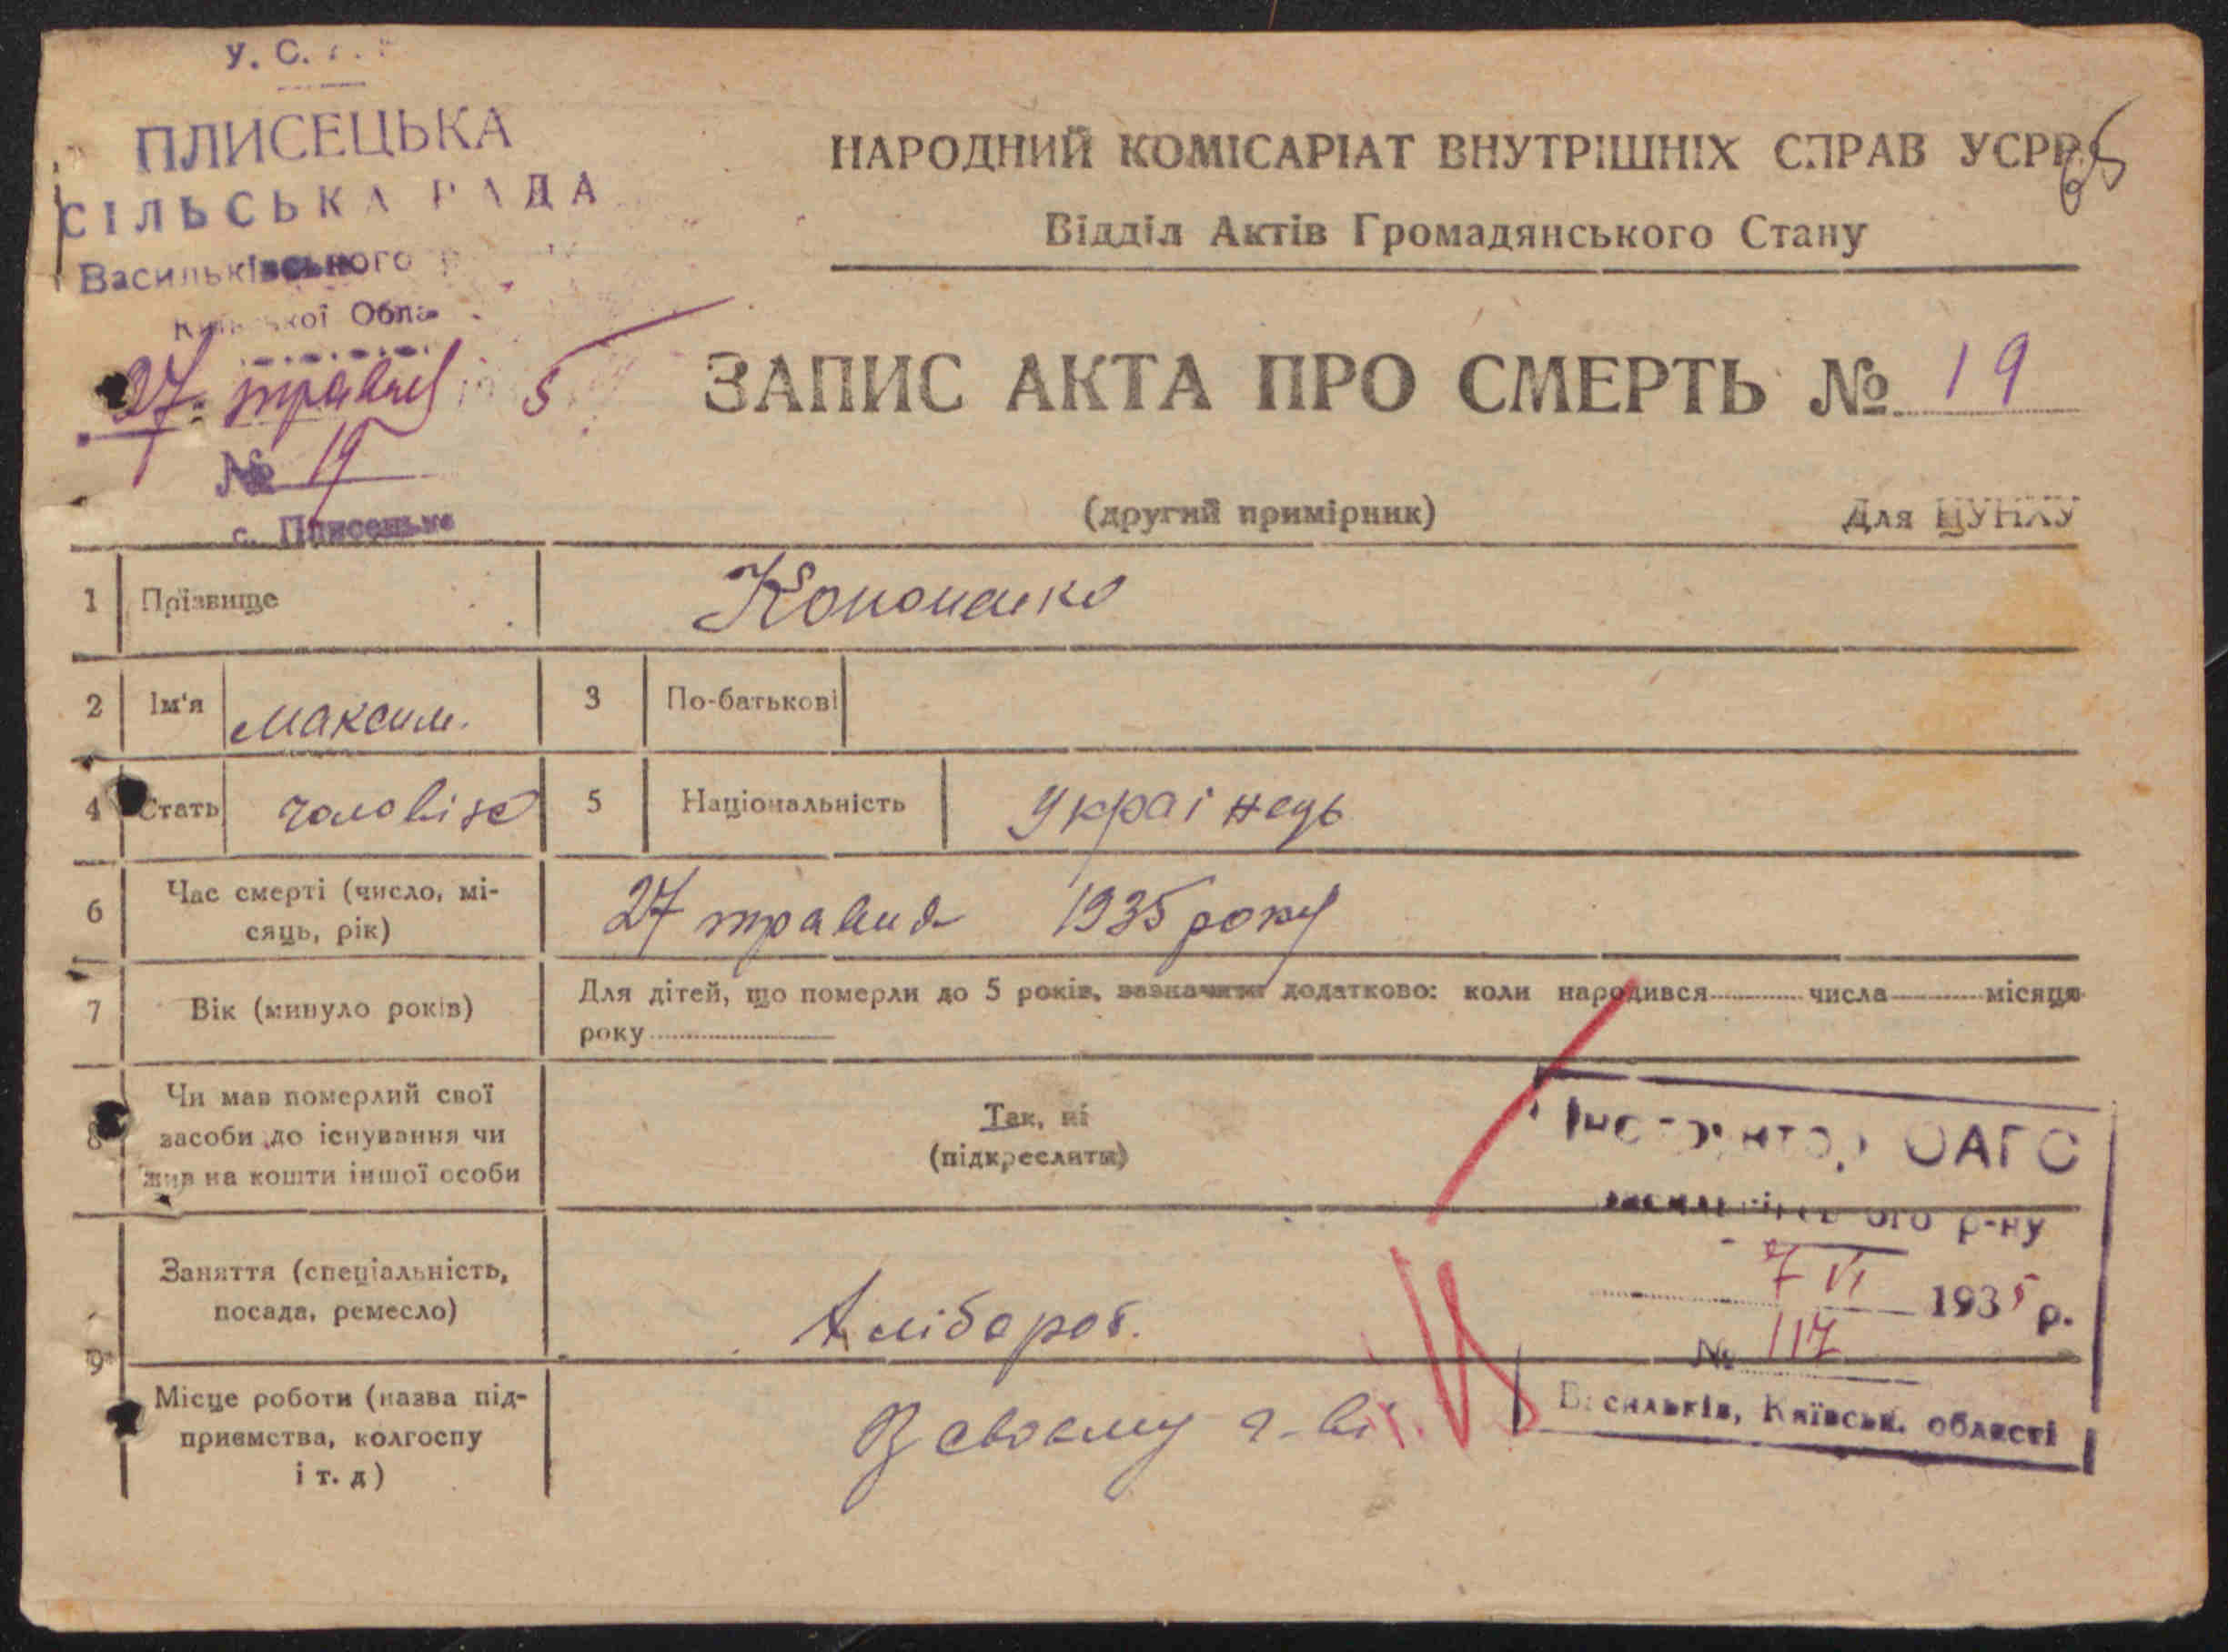 У. С.
ПЛИСЕЦЬКА
СІЛЬСЬКА РАДА
Васильківського
Київської Обла
27 травня 5
№ 19
с. Плисецьке
65
НАРОДНИЙ КОМІСАРІАТ ВНУТРІШНІХ СПРАВ УСРР
Відділ Актів Громадянського Стану
ЗАПИС АКТА ПРО СМЕРТЬ № 19
(другий примірник) Для ЦУНХУ
1 Прізвище Кононенко
2 Ім'я Максим. 3 По-батькові
4 Стать чоловіче 5 Національність Українець
6 Час смерті (число, мі-
сяць, рік) 27 травня 1935 року
7 Вік (минуло років) Для дітей, що померли до 5 років, зазначити додатково: коли народився числа місяця
року
8 Чи мав померлий свої
засоби до існування чи
жив на кошти іншої особи
Так, ні
(підкреслити)
Інспектор ОАГС
Васильківського р-ну
7 VI 1935 р.
№ 117
Васильків, Київськ. області
9 Заняття (спеціальність,
посада, ремесло) Хлібороб.
Місце роботи (назва під-
приємства, колгоспу
і т. д) В своєму г-ві.